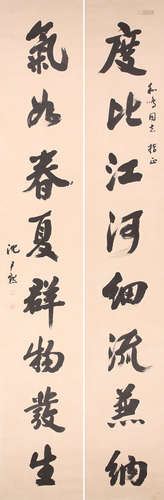 度比江河細流兼納
和嶠同志 指正
氣如春夏群物發生
沈尹默